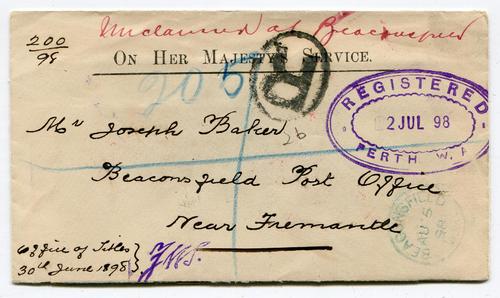 Unclaimed at Beaconsfield
200
98
ON HER MAJESTY'S SERVICE.
205
R
REGISTERED
2 JUL 98
PERTH W.A
26
Mr Joseph Baker
Beaconsfield Post Office
Near Fremantle
BEACONSFIELD
AU 5
98
Office of Titles
30th June 1898